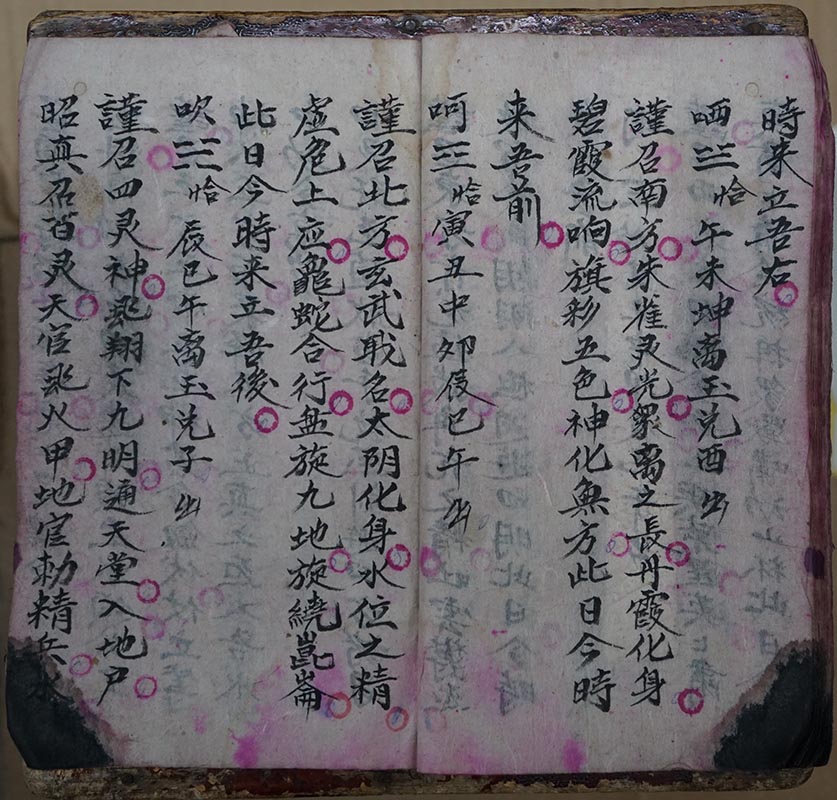 時来立吾右
哂三三恰午未坤离玉兑酉出
謹召南方朱雀灵光衆离之長丹霞化身
碧霞流响旗彩五色神化無方此日今時
来吾前
呵三三恰寅丑中夘辰巳午出
謹召北方玄武戢名太阴化身水位之精
虚危上应龜蛇合行盘旋九地旋繞崑崙
此日今時来立吾後
吹三三恰辰巳午离玉兑子出
謹召四灵神飛翔下九明通天堂入地户
昭真召百灵天官飛火甲地官勅精兵水